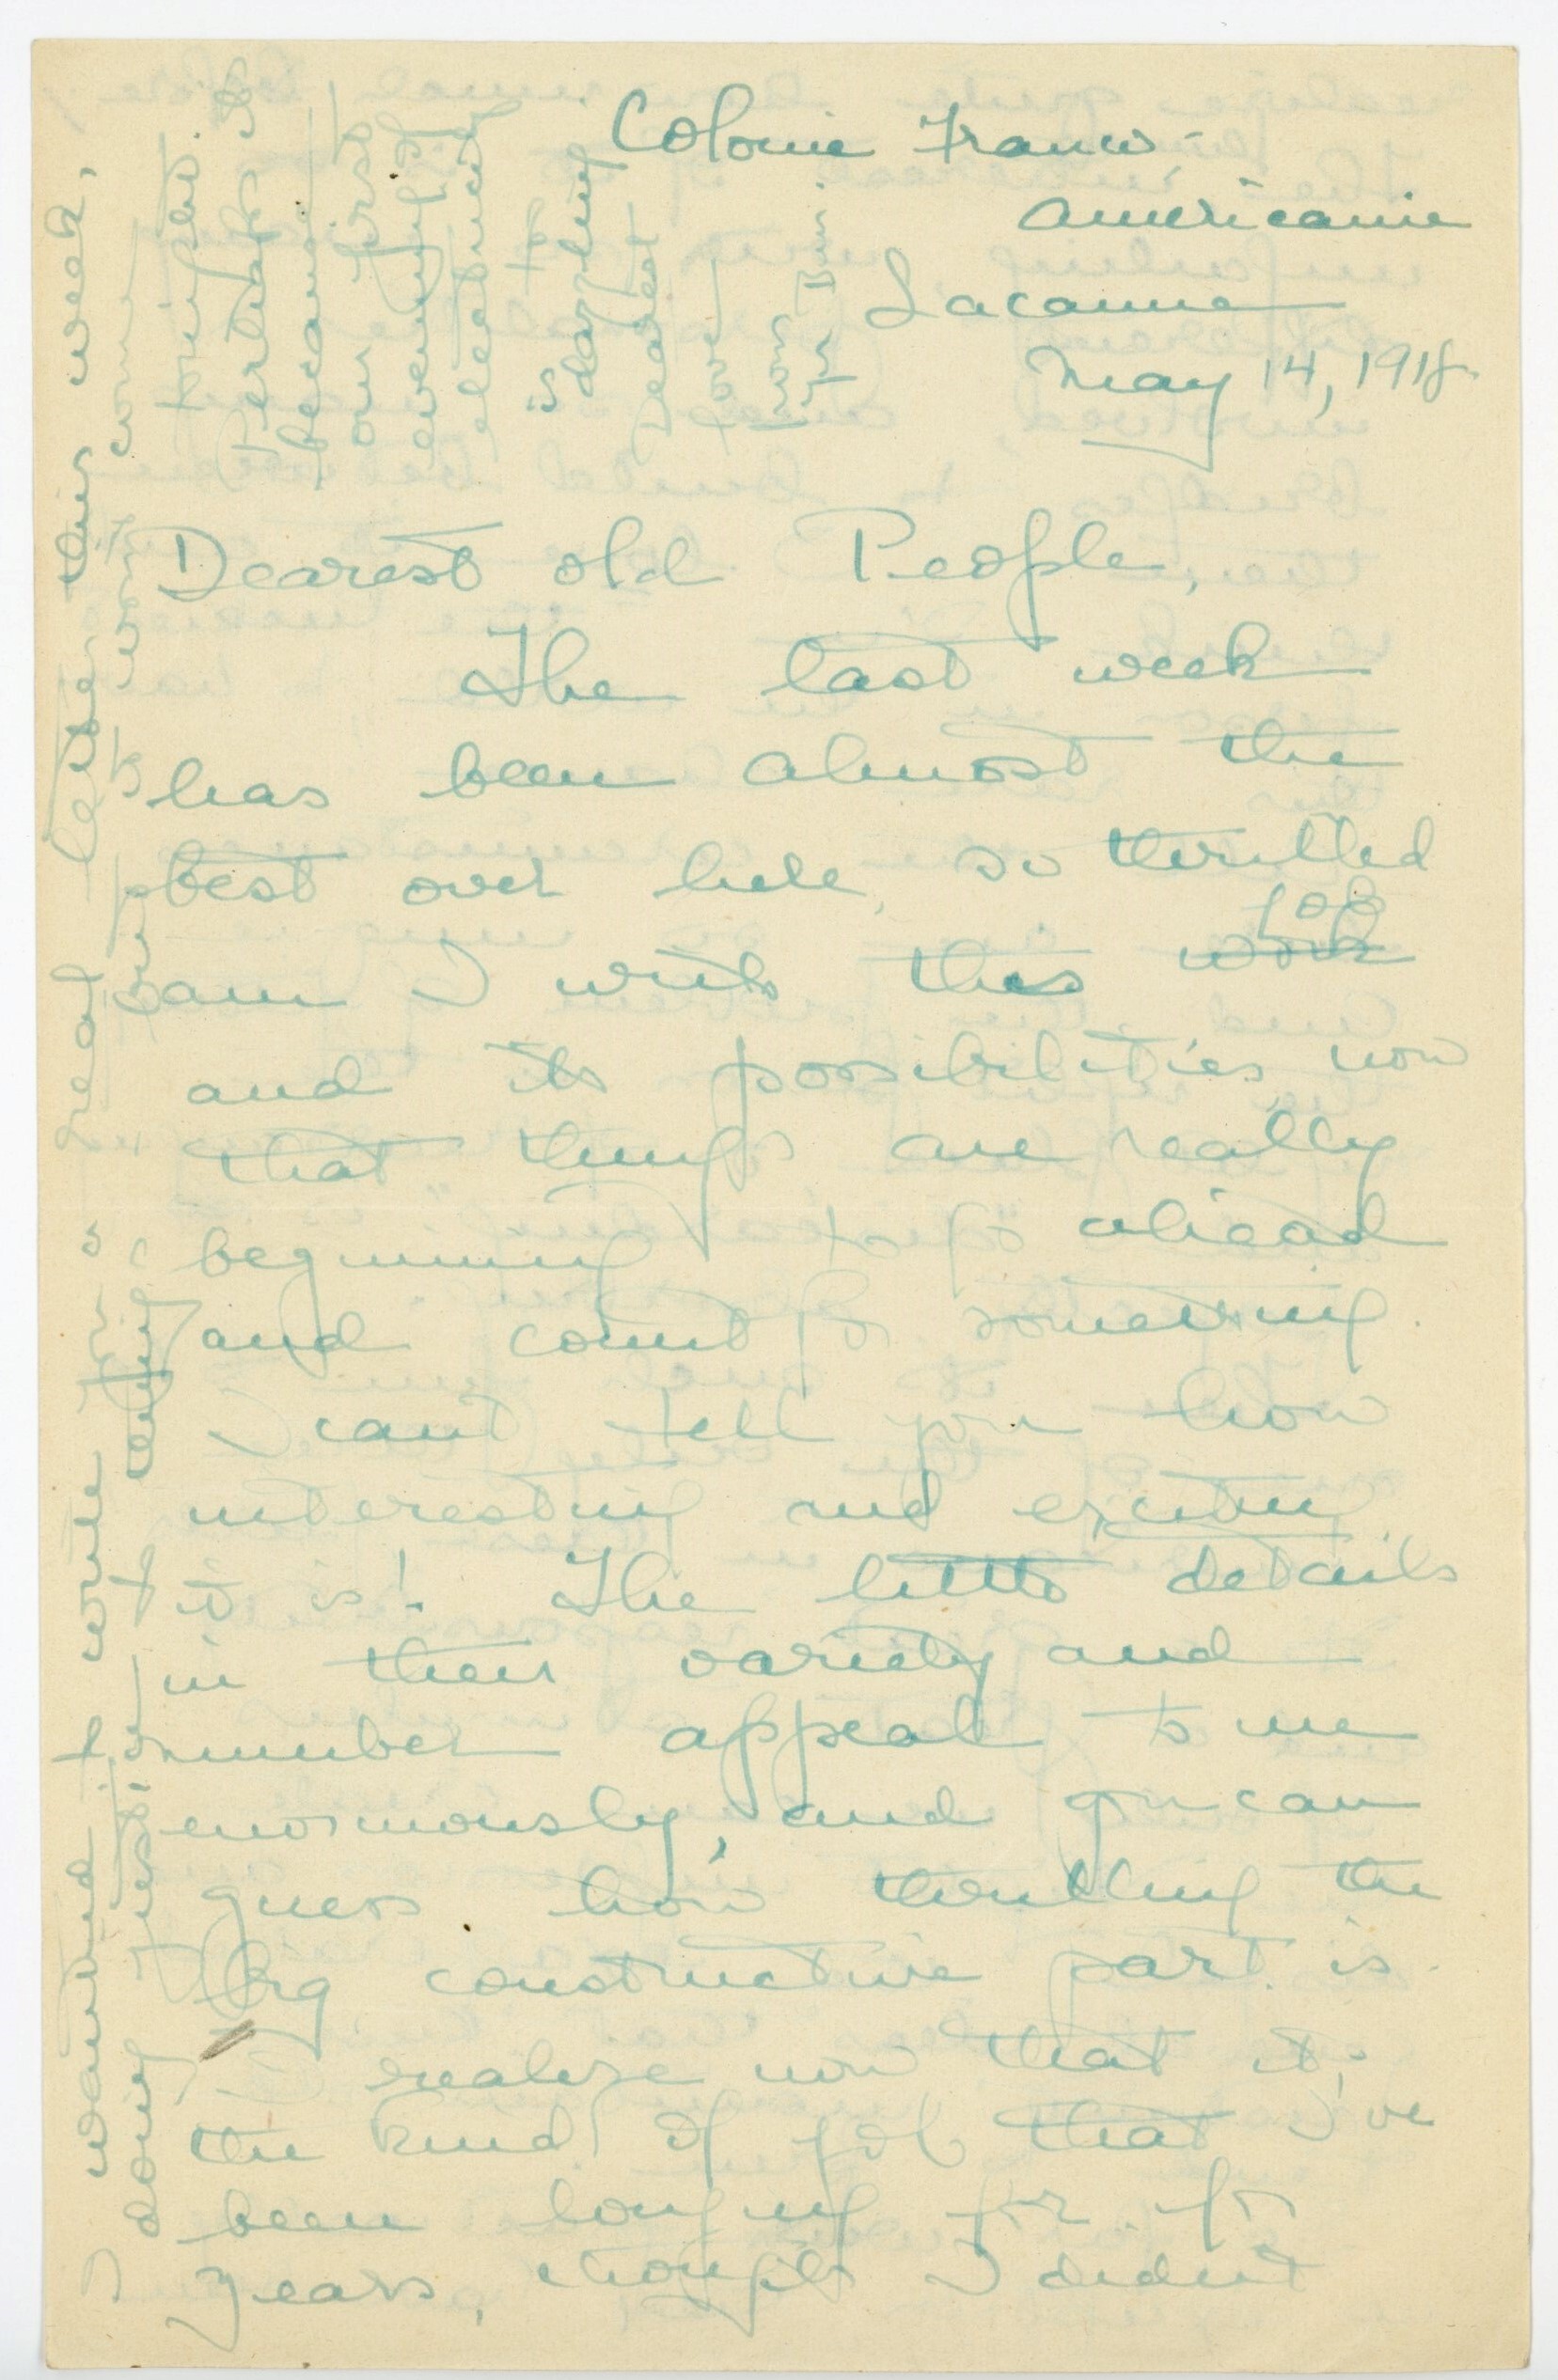 Colonie Franco-
Américaine
Lacanau
May 14, 1918.
Dearest old People,
The last week
has been almost the
best over here, so thrilled
am I with this work job
and its possibilities, now
that things are really
beginning to go ahead
and count for something.
I can't tell you how
interesting and exciting
it is! The little details
in their variety and
number appeal to me
enormously, and you can
guess how thrilling the
big constructive part is.
I realize now that it's
the kind of job that I've
been longing for for
years, though I didn't
I wanted to write you a real letter this week,
doing justice to everything, but it won't come
tonight.
Perhaps it
because
our first
evening of
electricity
is too
dazzling
Dearest
love
from